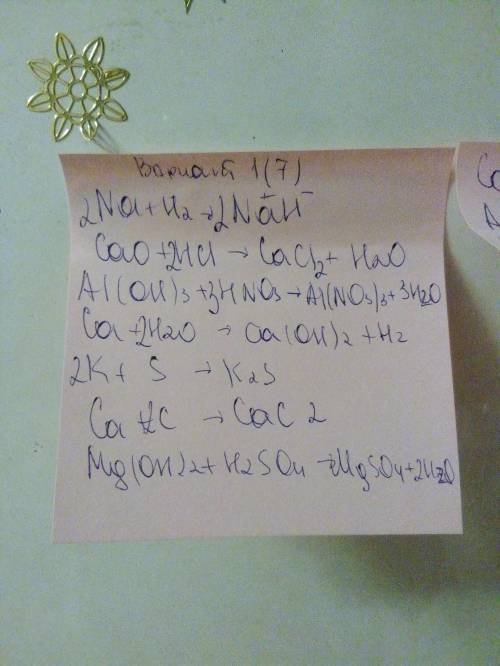 Вариант 1(7)
2Na+H2→2Na⁺H⁻
CaO+2HCl→CaCl2+H2O
Al(OH)3+3HNO3→Al(NO3)3+3H2O
Ca+2H2O→Ca(OH)2+H2
2K+S→K2S
Ca+2C→CaC2
Mg(OH)2+H2SO4→MgSO4+2H2O
Ca
A